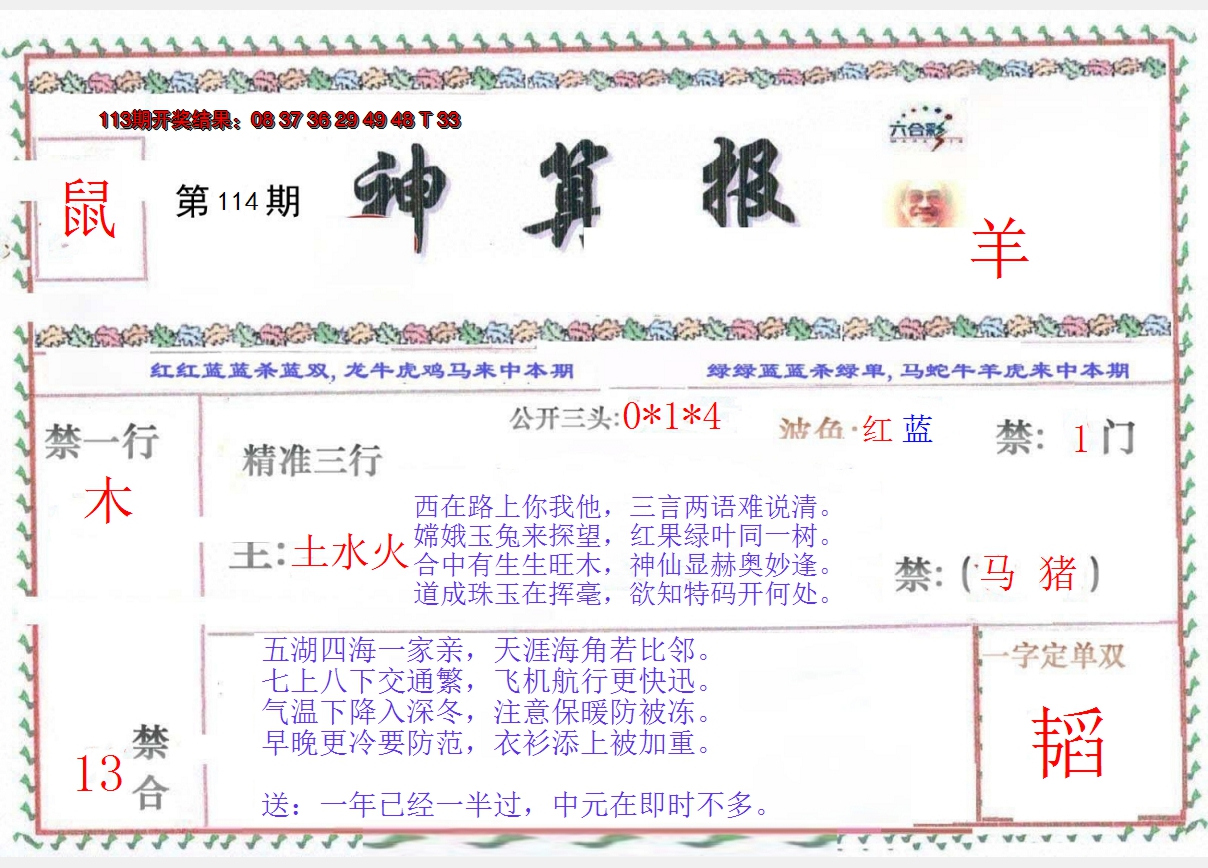 113期开奖结果：08 37 36 29 49 48 T 33
鼠
第114期
神算报
六合彩
羊
红红蓝蓝杀蓝双,龙牛虎鸡马来中本期
绿绿蓝蓝杀绿单,马蛇牛羊虎来中本期
禁一行
木
精准三行
公开三头:0*1*4
波色:红 蓝
禁: 1门
主:土水火
西在路上你我他，三言两语难说清。
嫦娥玉兔来探望，红果绿叶同一树。
合中有生生旺木，神仙显赫奥妙逢。
道成珠玉在挥毫，欲知特码开何处。
禁:(马 猪)
禁合
13
五湖四海一家亲，天涯海角若比邻。
七上八下交通繁，飞机航行更快迅。
气温下降入深冬，注意保暖防被冻。
早晚更冷要防范，衣衫添上被加重。
送：一年已经一半过，中元在即时不多。
一字定单双
韬